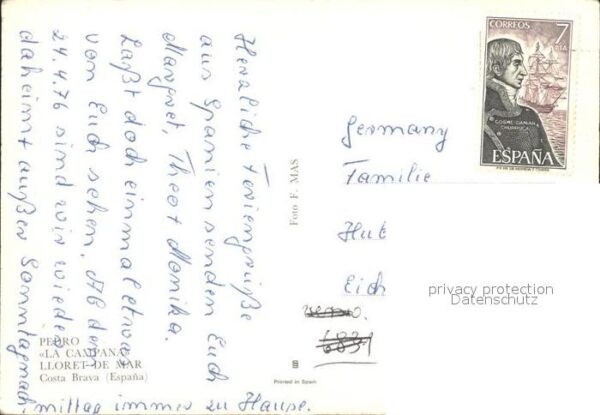 Herzliche Feriengrüße
aus Spanien senden Euch
Margret, Theo + Monika.
Laßt doch einmal etwas
von Euch sehen. Ab dem
24.4.76 sind wir wieder
daheim + außer Sonntagnach-
mittag immer zu Hause.
PEDRO
«LA CAMPANA»
LLORET DE MAR
Costa Brava (España)
Foto F. MAS
Printed in Spain
CORREOS 7 PTA
COSME DAMIAN CHURRUCA
ESPAÑA
Germany
Familie
Hut
Eich
6831
privacy protection
Datenschutz